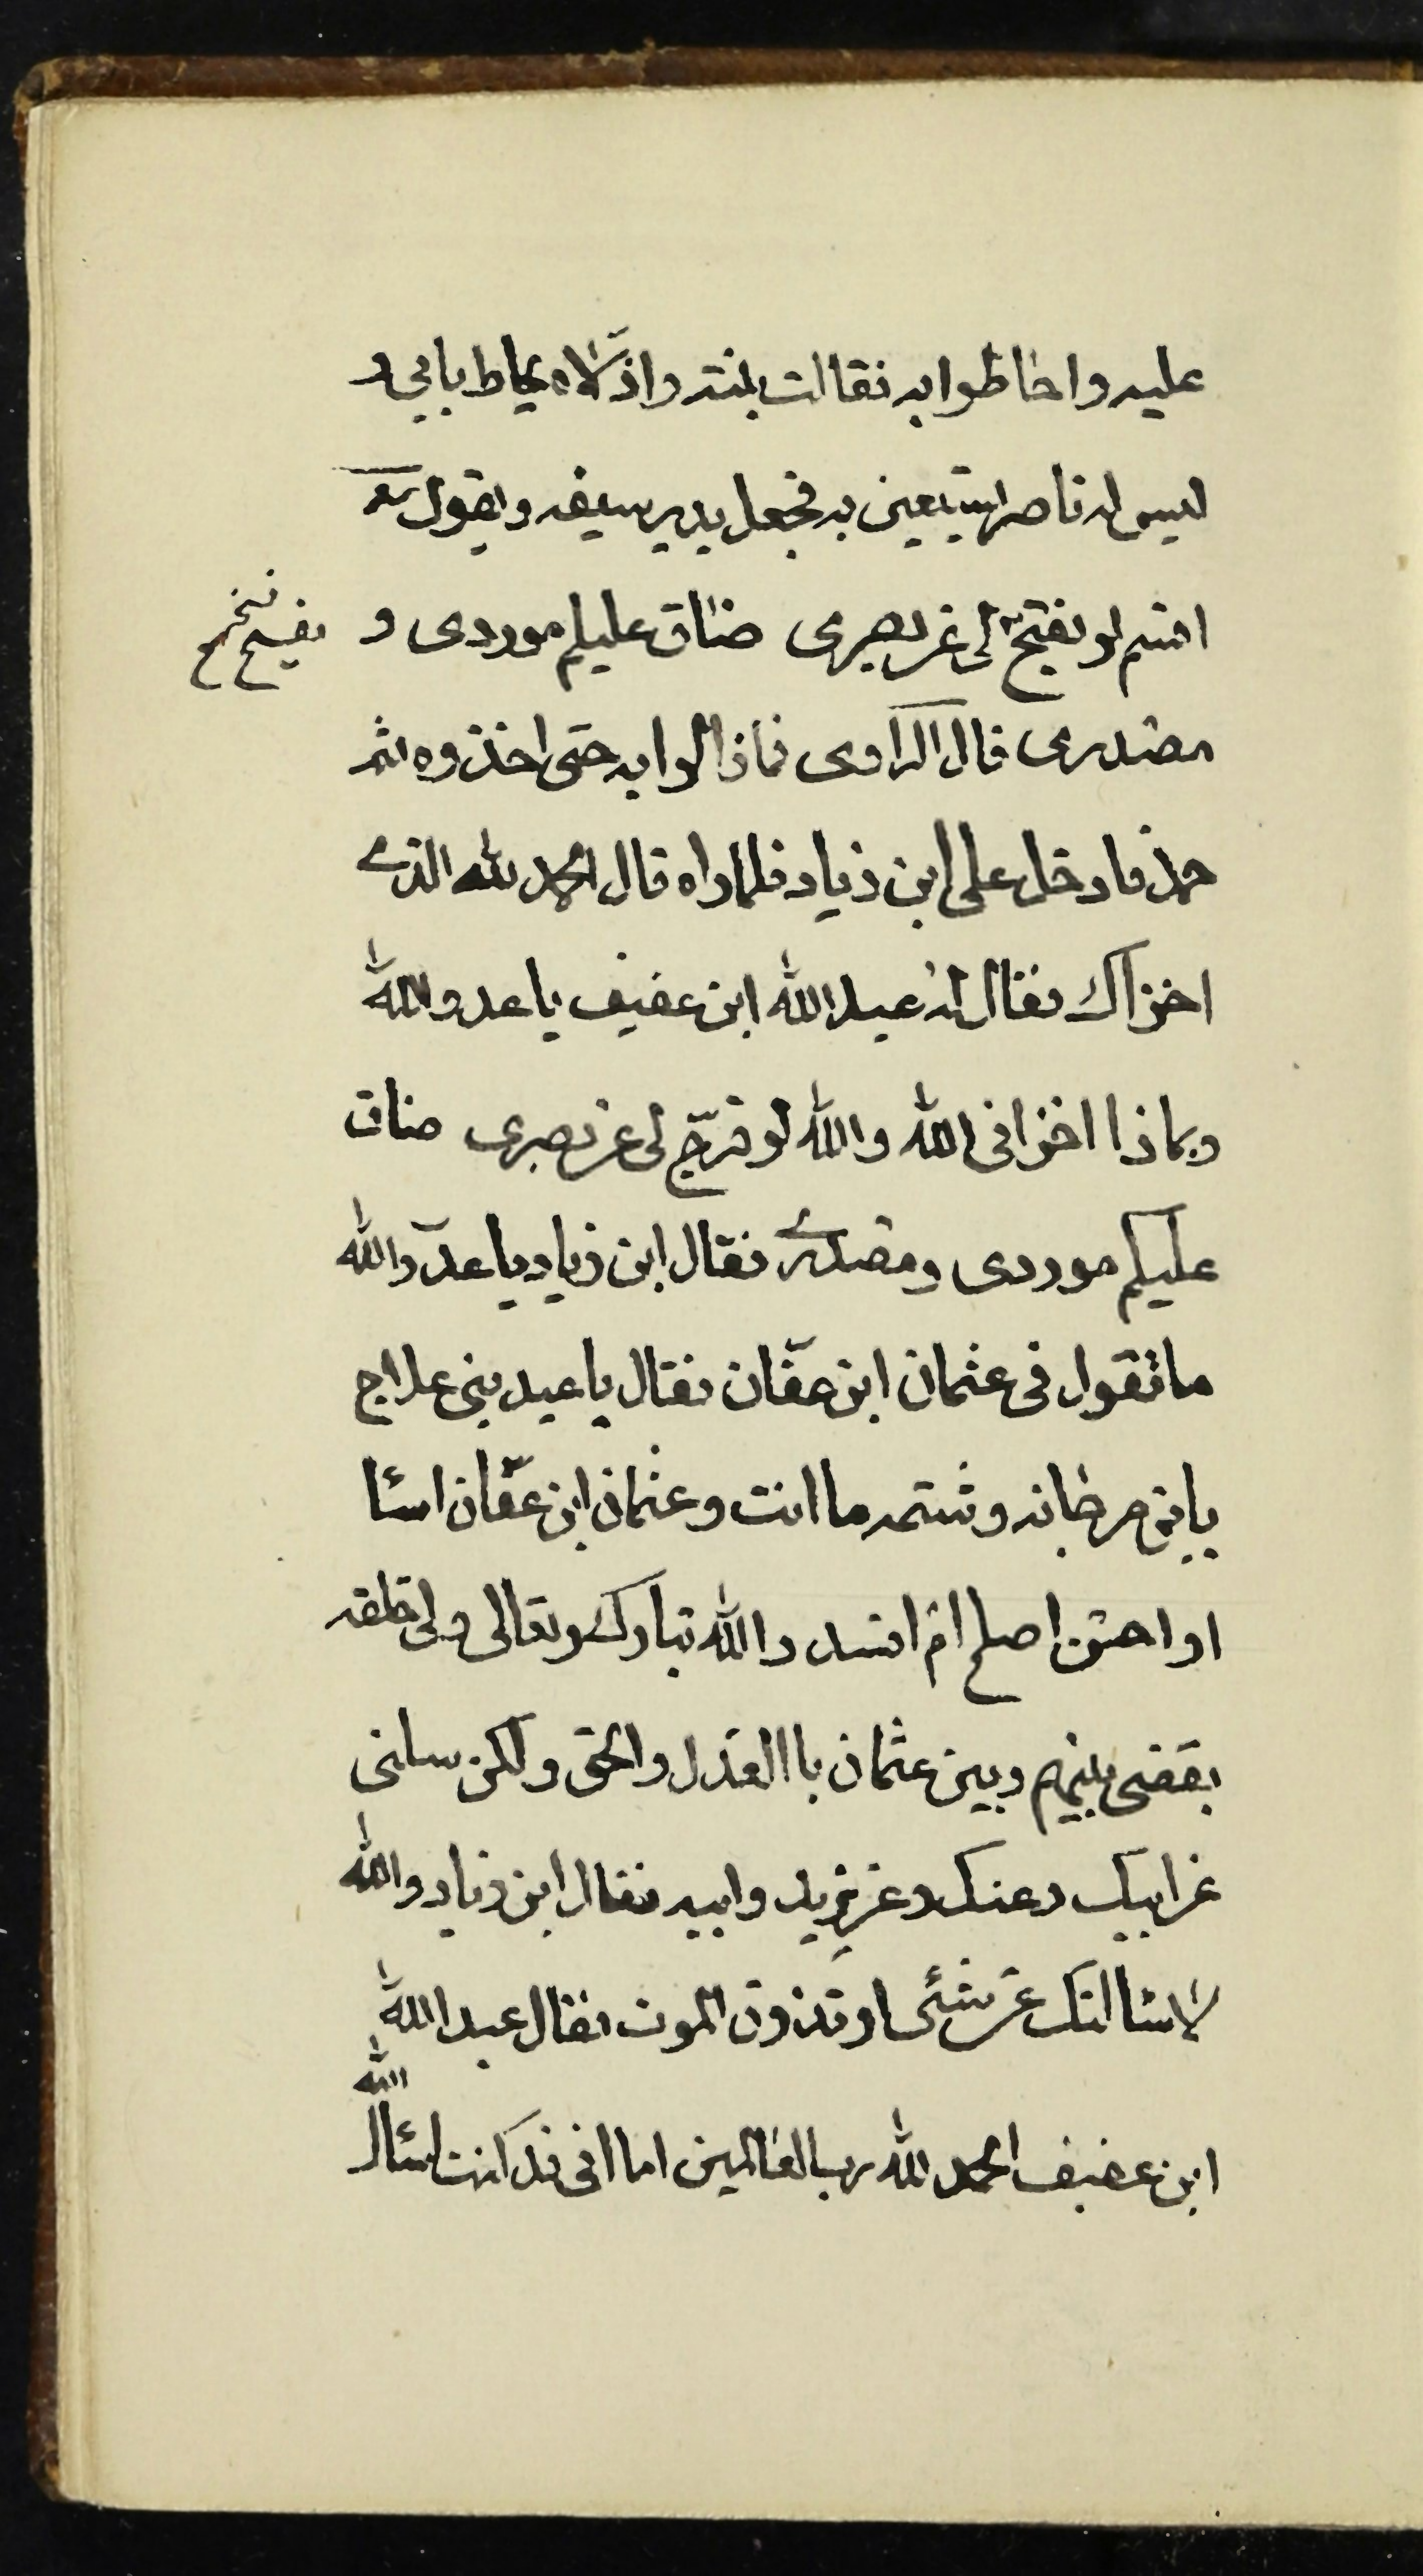 عليه واحاطوا به فقالت بنته واذلّاه يحاط بابي و
ليس له ناصر يستعين به فجعل يدير سيفه ويقول شعر
اقسم لو يفتح لى عن بصرى ضاق عليكم موردى و
يفسح نخ
مصدرى قال الراوى فمازالوا به حتى اخذوه ثم
حمل فادخل على ابن زياد فلما راه قال الحمد لله الذى
اخزاك فقال له عبد الله ابن عفيف يا عدو الله
وبماذا اخزانى الله والله لو فرّج لى عن بصرى ضاق
عليكم موردى ومصدرى فقال ابن زياد يا عدوّ الله
ما تقول فى عثمان ابن عفّان فقال يا عبد بنى علاج
يا ابن مرجانه وشتمه ما انت وعثمان ابن عفّان اساء
او احسن اصلح ام افسد والله تبارك وتعالى ولى خلقه
يقضى بينهم وبين عثمان باالعدل والحق ولكن سلنى
عن ابيك وعنك وعن يزيد وابيه فقال ابن زياد والله
لا سئالتك عن شئ او تذوق الموت فقال عبد الله
ابن عفيف الحمد لله رب العالمين اما انى قد كنت اسئال
الله